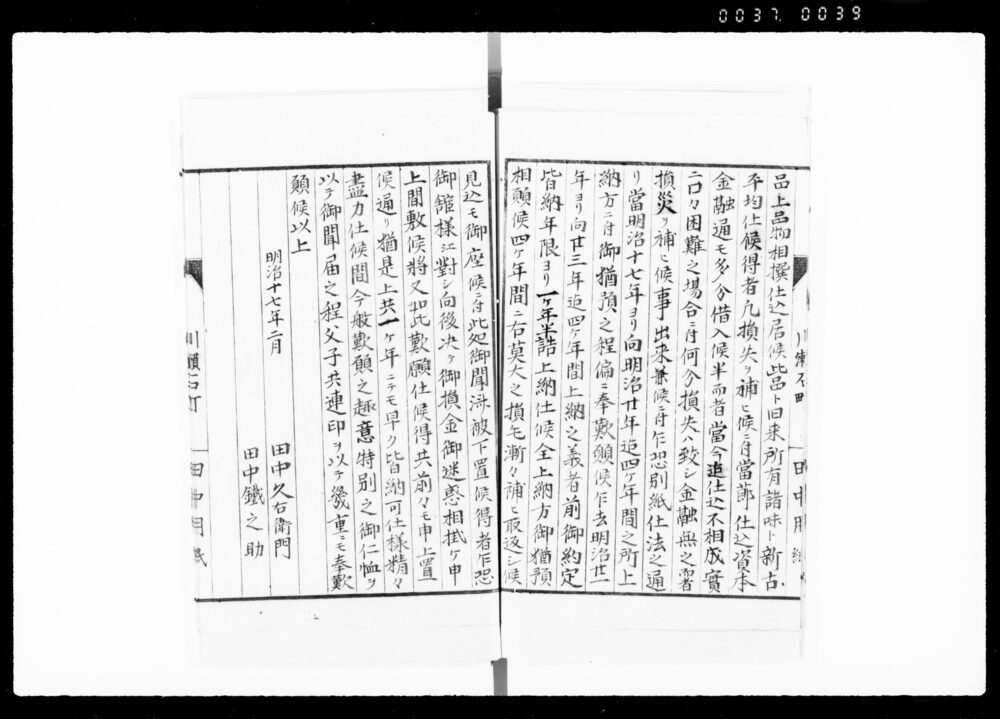 0037 0039
品上品物相撰仕込居候此品ト旧来所有諸味ト新古
平均仕候得者凡損失ヲ補ヒ候ニ付當節仕込資本
金融通モ多分借入候半而者當今迚仕込不相成実
ニ口々困難之場合ニ付何分損失ハ致シ金融無之
損災ヲ補ヒ候事出来兼候ニ付乍恐別紙仕法之通
リ當明治十七年ヨリ向明治廿年迄四ケ年間之所上
納方ニ付御猶預之程偏ニ奉歎願候乍去明治廿一
年ヨリ向廿三年迄四ケ年間上納之義者前御約定
皆納年限ヨリ一ケ年半詰上納仕候全上納方御猶預
相願候四ケ年間ニ右莫大之損毛漸々補ヒ取返シ候
見込モ御座候ニ付此処御聞済被下置候得者乍恐
御舘様江對シ向後决テ御損金御迷惑相掛ケ申
上間敷候將又如此歎願仕候得共前々モ申上置
候通リ猶是上共一ケ年ニテモ早ク皆納可仕様精々
盡力仕候間今般歎願之趣意特別之御仁恤ヲ
以テ御聞届之程父子共連印ヲ以テ幾重ニモ奉歎
願候以上
明治十七年二月
田中久右衛門
田中鐵之助
川瀬石町
田中用紙
川瀬石町
田中用紙